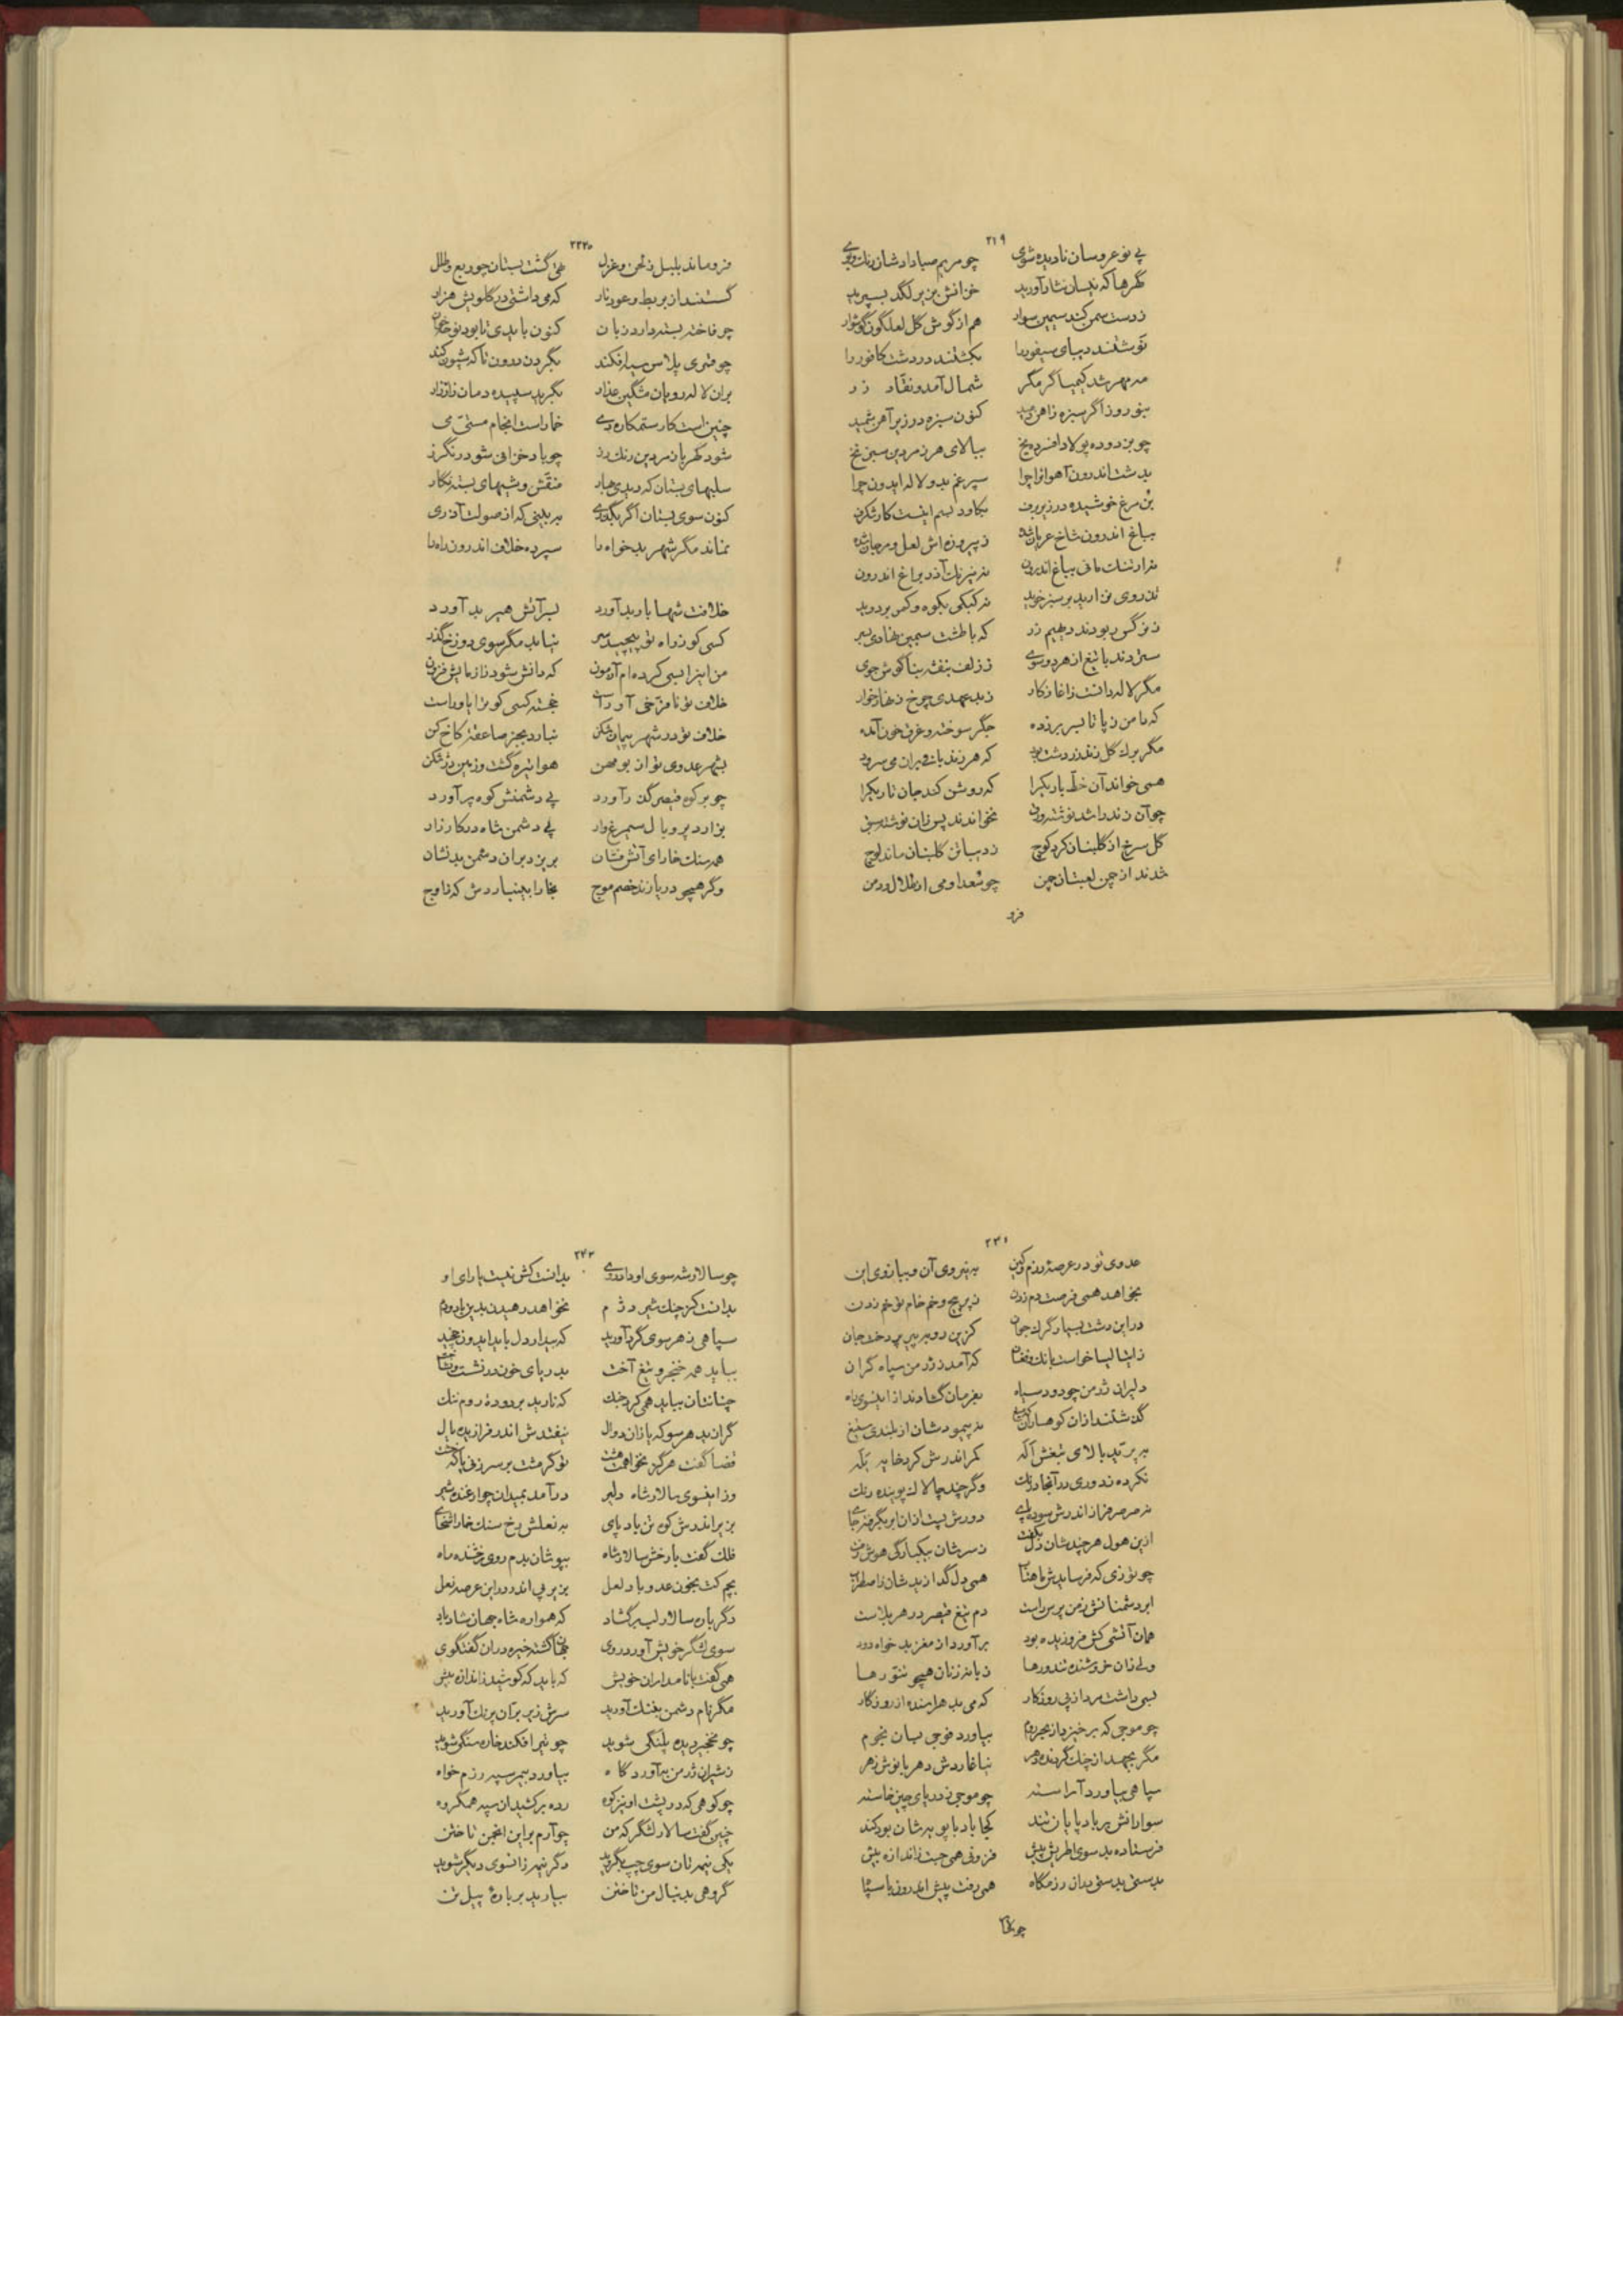 ۲۱۹
پی نوعروسان نادیده شوی چو مریم صبا دادشان رنگ و بوی
گهرها که نیسان نثار آورید خزانش بزیر لگد بسپرید
ز دست سمن کند سیمین سوار هم از گوش گل لعلگون گوشوار
بکشتند در دشت کافور را
مه مهر شد کیمیاگر مگر شمال آمد و نقاد زر
بنوروز اگر سبزه ز آهن دمید کنون سبزه در زیر آهن خمید
چو بزدوده پولاد افسرده یخ ببالای هر زمردین سبز نخ
بدشت اندرون آهوانرا چرا سپرغم بد و لاله ایدون چرا
بن مرغ خوشیده در زیر برف بکاود بسم اینت کار شگرف
بباغ اندرون شاخ عریان شده ز پیروزه اش لعل و مرجان شده
بباغ اندرون نه نیرنگ آذر براغ اندرون
نه کبکی بکوه و کمر بر دوید
ز نرگس ربودند دیهیم زر که با طشت سیمین نهادی بسر
ستردند با تیغ از هر دو سوی ز زلف بنفشه بناگوش جوی
مگر لاله دانست ز آغاز کار ز بد عهدی چرخ زنهار خوار
که دامن ز پا تا بسر بر زده جگر سوخته و غرق خون آمده
مگر برگ گل زند زردشت بود که هر زند باف بر آن می سرود
همی خواند آن خط باریک را که روشن کند جان تاریک را
چو آن زند را شد نوشته ز وی نخواندند پس زان نوشته
گل سرخ از گلبنان کرد کوچ ز دیبا تن گلبنان ماند لوچ
شدند از چمن لعبتان چمن چو سعدا و می از طلال و دمن
فرو
۲۲۰
فرو ماند بلبل ز لحن و غزل تهی گشت بستان چو ربع و طلل
گسستند از بربط و عود تار که می داشتی در گلویش هزار
چو فاخته بسته دارد زبان کنون باید
چو قمری پلاس سیه افکند بگردن درون تا که شیون کند
بران لاله رویان مشگین عذار بگرید سپیده دمان زار زار
چنین است کار ستمکاره دی خمار است انجام مستی می
شود کهربا زمردین رنگ رز چو باد خزانی شود رنگرز
سلبهای بستان که دیدی بهار منقش وشیهای بسته نگار
کنون سوی بستان اگر بگذری ببینی که از صولت آذری
نماند مگر شهر بدخواه را سپرده خلاف اندرون راه را
خلافت شها بار بد آورد بسر آتش هیربد آورد
کسی کو ز راه تو پیچید سر نیابد مگر سوی دوزخ گذر
من اینرا بسی کرده ام آزمون که دانش شود ز آزمایش فزون
خلاف تو نا فرخی آور است خجسته کسی کو ترا یاور است
خلاف تو در شهر پیمان شکن نبارد بجز صاعقه کاخ کن
بشهر عدوی تو از بومهن هوا تیره گشت و زمین دژ شکن
چو بر کوه قیصر گذر آورد پی دشمنش کوه پر آورد
بر آرد پر و بال سیمرغ وار پی دشمن شاه در کارزار
همه سنگ خارای آتش فشان بریزد بران دشمن بد نشان
وگر همچو دریا زند خصم موج بخارا
۲۳۱
عدوی تو در عرصهٔ رزم و کین به نیروی آن و ببازوی این
بخواهد همی فرصت دم زدن ز پر پیچ و خم خام تو خم زدن
در این دشت بسیار گرگ جوان کزین روبه پیر پر دخت جان
خواست بانگ و فغان که آمد ز دژمن سپاه گران
دلیران دژمن چو دود سیاه بفرمان گشادند از اینسوی راه
گذشتند ازان کوهساران نه پیمودشان از بلندی ستیغ
کمر اندرش کرد خایه
نکرده ز دوری در آنجا درنگ وگر چند چالاک پوینده رنگ
نه صرصر فراز اندرش سوده پای
ازین هول هر چندشان دل ز سرشان بیکبارگی هوش رفت
همی دل گدازیدشان ز اضطراب
ابر دشمنانش ز من پرس راست دم تیغ قیصر در هر بلاست
همان آتشی کش فروزیده بود بر آورد از مغز بدخواه دود
ولی زان خروشنده تندورها زبانه زنان همچو تنورها
بسی داشت مرد از پی روزگار که می بد هراسنده از روزگار
چو موجی که برخیزد از بحر روم بیاورد فوجی بسان نجوم
مگر بجهد از چنگ گردنده دهر نیاغاردش دهر با نوش زهر
سپاهی بیاورد آراسته چو موجی ز دریای چین خاسته
سوارانش بر باد پایان تند کجا باد با پویه شان بود کند
فرستاده بد سوی اطریش پیش فزونی همی جست ز اندازه بیش
بدستی بدستی بدان رزمگاه همی رفت پیش اندرون با سپاه
۲۴۲
چو سالار شه سوی او داد روی بدانست کش نیست یارای او
بدانست کز چنگ شیر دژم نخواهد رهیدن بدین باد و دم
سپاهی ز هر سوی گرد آورید که بیدار دل باید ایدون
بباید همه خنجر و تیغ آخت بدریای خون در نشست و بتاخت
چنانشان بباید همی کرد خنگ که ناید بر دودهٔ روم ننگ
گران بد هر سو که یازان دوال نیفتدش اندر فرازیده یال
قضا گفت هرگز نخواهمت هشت تو گر مشت بر سر زنی یا که خشت
وز اینسوی سالار شاه دلیر در آمد بمیدان چو ارغنده شیر
بزیر اندرش کوه تن باد پای به نعلش رخ سنگ خارا
فلک گفت با رخش سالار شاه بپوشان بدم روی رخشنده ماه
بچم کت بخون عدو باد لعل بزیر پی اندر در این عرصه نعل
دگر باره سالار لب بر گشاد که همواره شاه جهان شاد باد
سوی لشگر خویش آورد روی جهان گشته خیره دران گفتگوی
همی گفت با نامداران خویش که باید که کوشید ز اندازه بیش
مگر نام دشمن بننگ آورید سرش زیر بران پرنگ آورید
چو نخجیر دیده پلنگی شوید چو تیر افکند خاره سنگی شوید
ز شیران دژمن به آورد گاه بیاورد بیمر سپه رزم خواه
چو کوهی که در پشت او نیز کوه رده بر کشیدان سپه همگروه
چنین گفت سالار لشگر که من چو آرم براین انجمن تاختن
یکی نیمه تان سوی چپ بگروید دگر نیمه زانسوی دیگر شوید
گروهی بدنبال من تاختن بیارید بر بارهٔ پیل تن